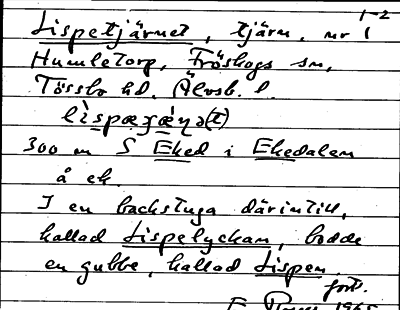 1-2
Lispetjärnet, tjärn, nr 1
Humletorp, Fröskogs sn,
Tössbo hd. Älvsb. l.
300 m S Eked i Ekedalen
å ek.
I en backstuga därintill,
kallad Lispelyckan, bodde
en gubbe, kallad Lispen
forts.
1965